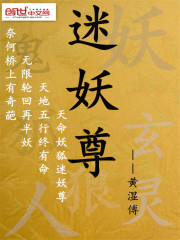 创世中文网
迷妖尊
——黄湿傅
奈何桥上有奇葩
无限轮回再半妖
天地五行终有命
天命妖狐迷妖尊
妖
玄灵
人